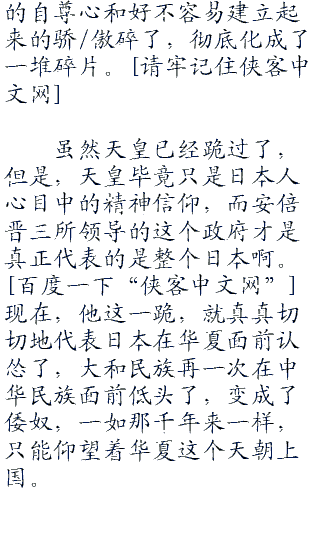 的自尊心和好不容易建立起
来的骄/傲碎了，彻底化成了
一堆碎片。[请牢记住侠客中
文网]
虽然天皇已经跪过了，
但是，天皇毕竟只是日本人
心目中的精神信仰，而安倍
晋三所领导的这个政府才是
真正代表的是整个日本啊。
[百度一下“侠客中文网”]
现在，他这一跪，就真真切
切地代表日本在华夏面前认
怂了，大和民族再一次在中
华民族面前低头了，变成了
倭奴，一如那千年来一样，
只能仰望着华夏这个天朝上
国。